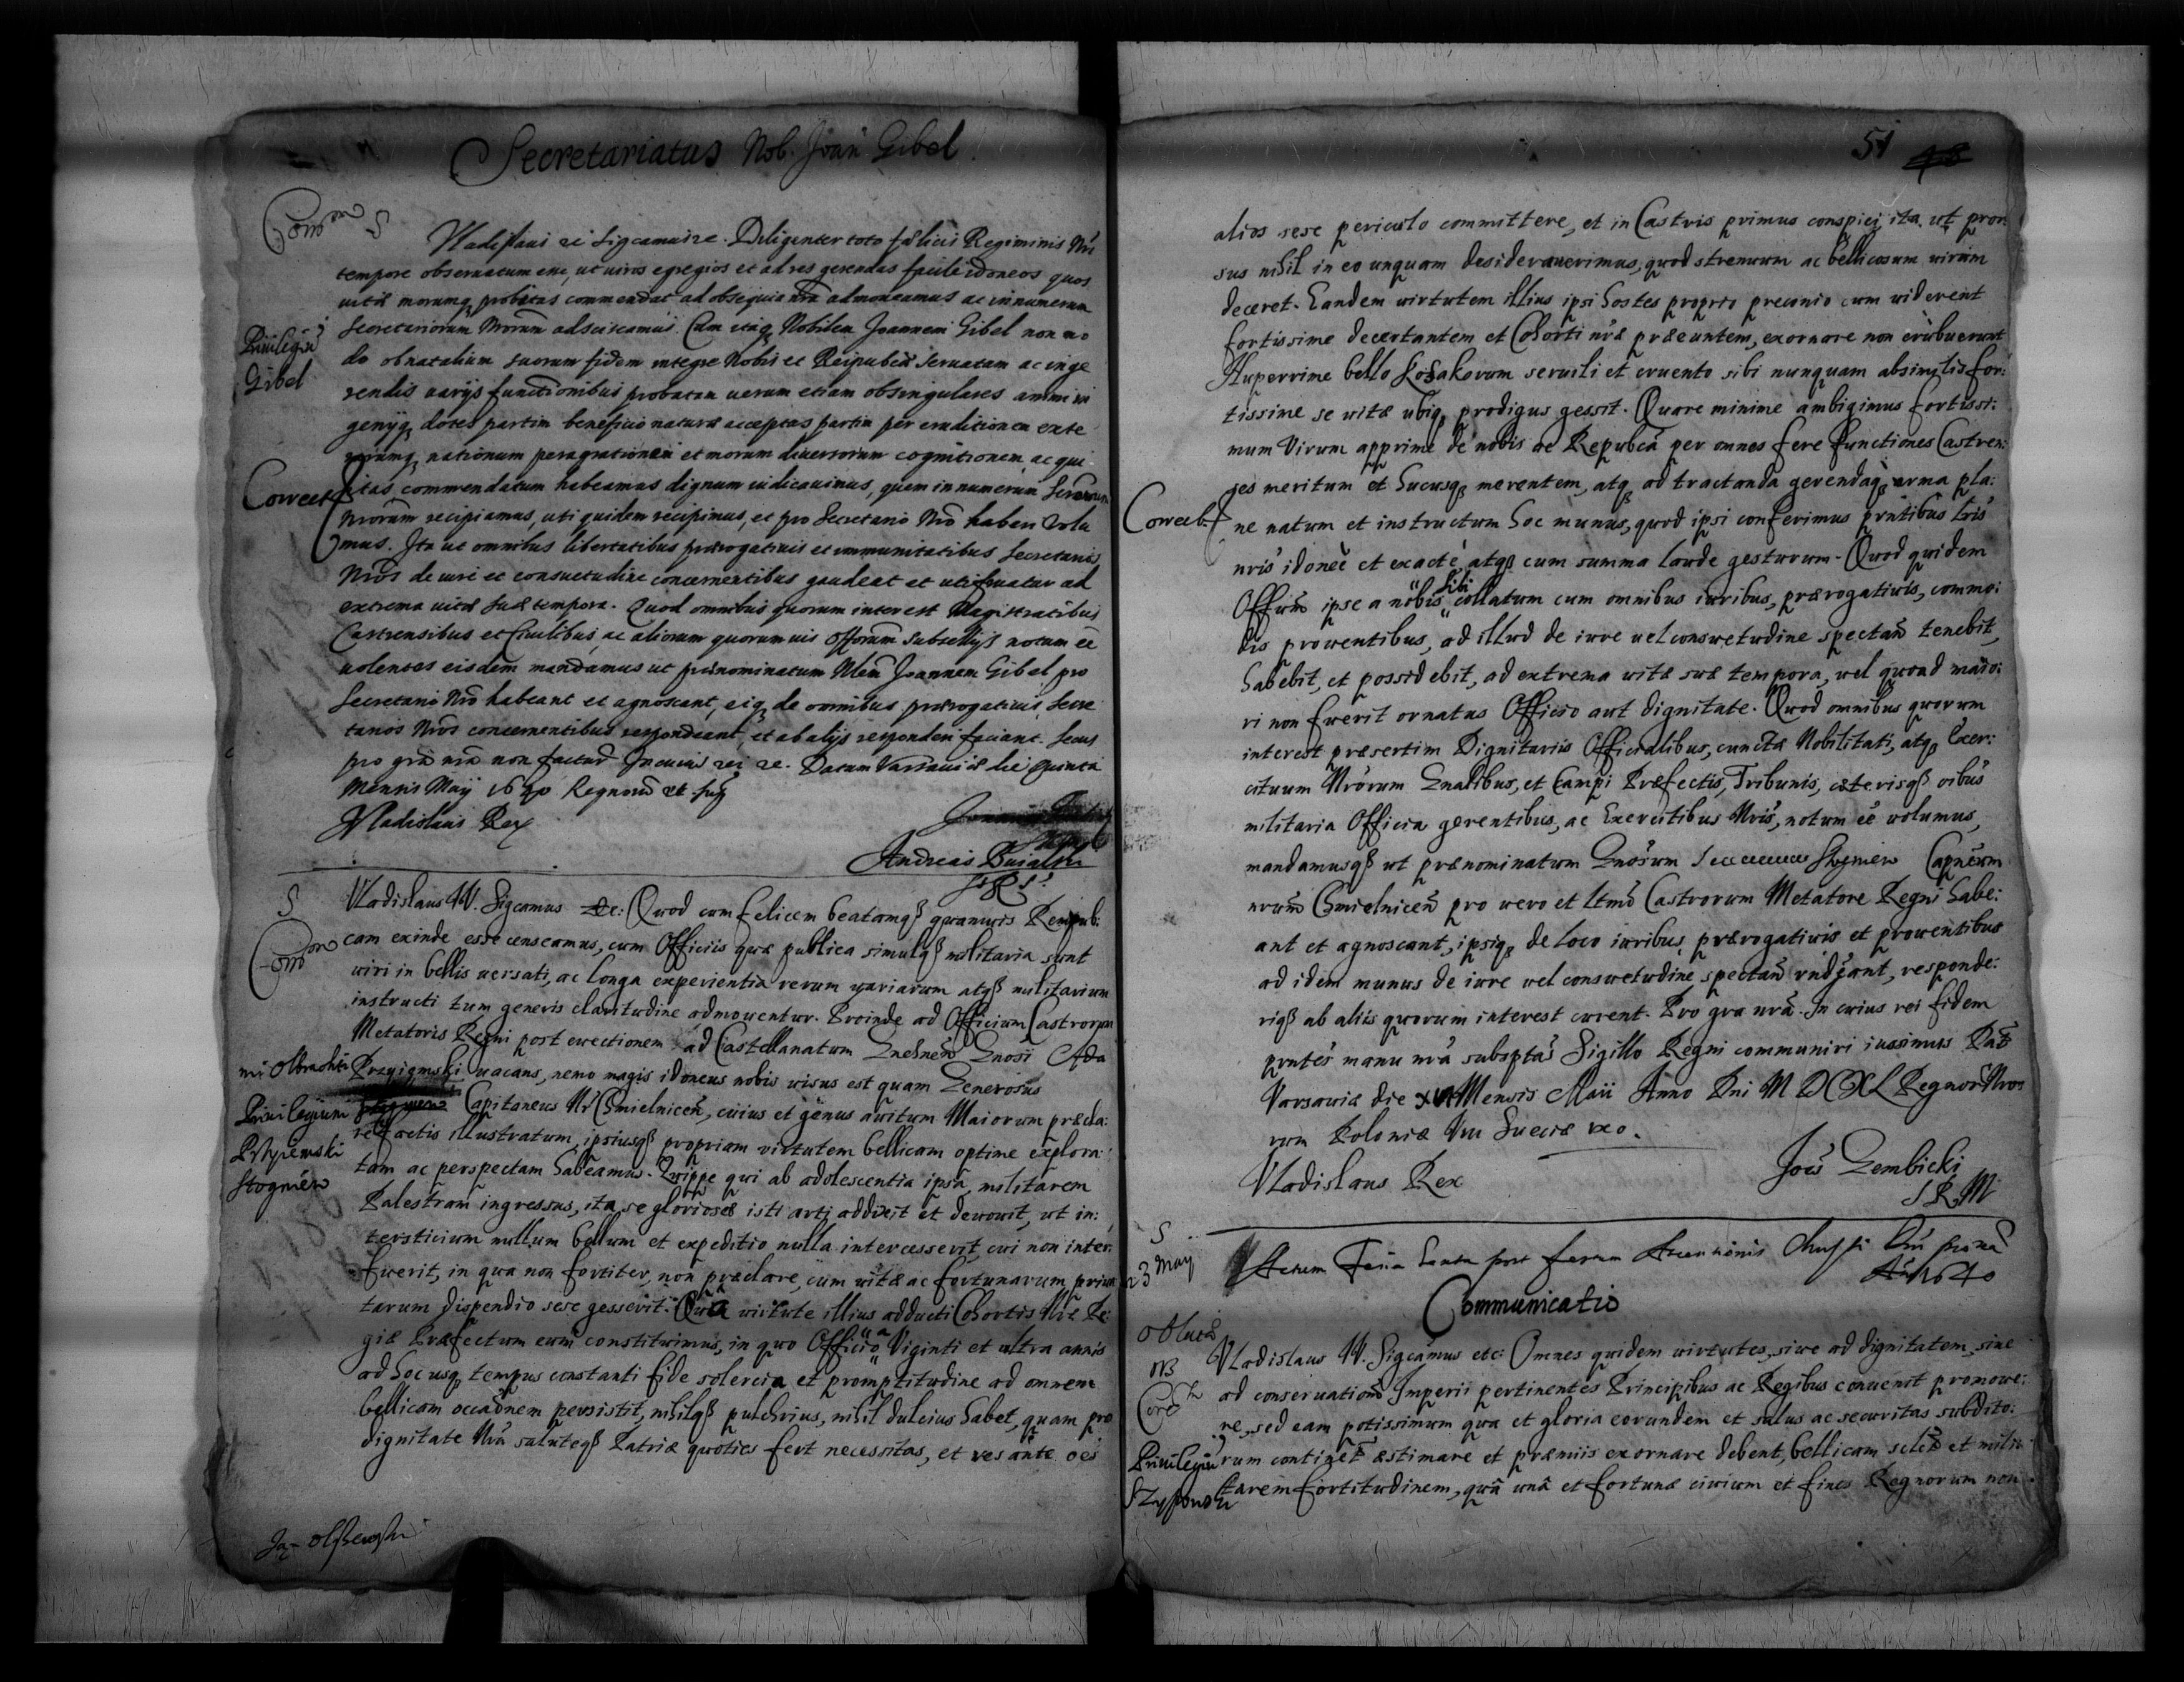 Secretariatus Nob. Joan Gibel.
Vladislaus Sigcamus Diligenter toto fælicis Regiminis Nri
tempore observatum esse, ut viros egregios et ad res gerendas facile idoneos quos
vitæ morumq probitas commendat ad obsequia nra admoveamus ac in numerum
Secretariorum Nrorum adsciscamus. Cum itaq Nobilem Joannem Gibel non mo
Privilegiu
Gibel
do ob natalium suorum fidem integre Nobis et Reipubcæ servatam ac in ge
rendis varijs functionibus probatam verum etiam ob singulares animi in
genijq dotes partim beneficio naturæ acceptas partim per eruditionem exte
rarumq nationum peragrationem et morum diversorum cognitionem acqui
Correct
sitas commendatum habeamus dignum iudicavimus, quem in numerum
Nrorum recipiamus, uti quidem recipimus, et pro Secretario Nro haberi volu
mus. Ita ut omnibus libertatibus prærogativis et immunitatibus Secretarios
Nros de iure et consuetudine concernentibus gaudeat et utifruatur ad
extrema vitæ suæ tempora. Quod omnibus quorum interest Magistratibus
Castrensibus et Civilibus, ac aliorum quorumvis Offorum subsellijs notum ee
volentes eisdem mandamus ut prænominatum Nlem Joannem Gibel pro
Secretario Nro habeant et agnoscant, eiq de omnibus prærogativis Secre
tarios Nros concernentibus respondeant, et ab alijs responderi faciant. Secus
pro gra nra non factur In cuius rei Datum Varsaviæ die quinta
Mensis Maij 1640 Regnorū
Vladislaus Rex
Andreas
S
Vladislaus IV. Sigcamus Quod cum felicem beatamqß quamvis Rempub:
cam exinde esse censeamus, cum Officiis quæ publica simulqß militaria sunt
viri in bellis versati, ac longa experientia rerum variarum atqß militarium
instructi tum generis claritudine admoventur. Proinde ad Officium Castrorum
Metatoris Regni post evectionem ad Castellanatum Gnesnen Gnosi Ada
mi Olbrachti Przyiemski vacans, nemo magis idoneus nobis visus est quam Generosus
Privilegium
Capitaneus Nr Chmielnicen, cuius et genus avitum Maiorum præcla:
re factis illustratum, ipsiusqß propriam virtutem bellicam optime explora:
Stogniew
tam ac perspectam habeamus. Quippe qui ab adolescentia ipsa militarem
Palestram ingressus, ita se gloriosæ isti arti addixit et devovit, ut in:
tersticium nullum bellum et expeditio nulla intercesserit, cui non inter
fuerit, in qua non fortiter, non præclare, cum vitæ ac fortunarum priva
tarum dispendio sese gesserit. Qua virtute illius adducti Cohortis Nræ Re:
giæ Præfectum eum constituimus, in quo Officio Viginti et ultra annis
ad hoc usq tempus constanti fide solercia et promptitudine ad omnem
bellicam occaōnem persistit, nihilqß pulchrius, nihil dulcius habet, quam pro
dignitate Nra saluteqß Patriæ quoties fert necessitas, et res ante oēs
Jan Olszewski
51 48
alios sese periculo committere, et in Castris primus conspici, ita ut pror
sus nihil in eo unquam desideraverimus, quod strenuum ac bellicosum virum
deceret. Eandem virtutem illius ipsi hostes proprio preconio cum viderent
fortissime decertantem et Cohorti nræ præeuntem, exornare non erubuerunt
Nuperrime bello Kosakorum servili et cruento sibi nunquam absimilis for:
tissime se vitæ ubiq prodigus gessit. Quare minime ambigimus fortissi:
mum Virum apprime de nobis ac Repubca per omnes fere functiones Castren:
ses meritum et hucusqß merentem, atqß ad tractanda gerendaqß arma pla:
Correct
ne natum et instructum hoc munus, quod ipsi conferimus prntibus Lris
nris idonee et exacte, atqß cum summa laude gesturum. Quod quidem
Offium ipse a nobis sibi collatum cum omnibus iuribus, prærogativis, commo:
dis proventibus, ad illud de iure vel consuetudine spectañ tenebit,
habebit, et possidebit, ad extrema vitæ suæ tempora, vel quoad maio:
ri non fuerit ornatus Officio aut dignitate. Quod omnibus quorum
interest præsertim Dignitariis Officialibus, cunctæ Nobilitati, atq Exer:
cituum Nrorum Gnalibus, et Campi Præfectis, Tribunis, cæterisqß oibus
militaria Officia gerentibus, ac Exercitibus Nris, notum ee volumus,
mandamusqß ut prænominatum Gnosum Stogniew Capneum
nrum Chmielnicen pro vero et Ltmo Castrorum Metatore Regni habe:
ant et agnoscant, ipsiq de loco iuribus prærogativis et proventibus
ad idem munus de iure vel consuetudine spectañ rndeant, responde:
riqß ab aliis quorum interest curent. Pro gra nra. In cuius rei fidem
prntes manu nra subsptas Sigillo Regni communiri iussimus Dat
Varsaviæ die Mensis Maii Anno Dni M DC XL Regnor Nro
rum Poloniæ VIII Sueciæ vero.
Vladislaus Rex
Joēs Gembicki
S R M
S
23 May
Actum Feria post festum Ascensionis Christi Dni
An 1640
Communicatio
Oblata
NB
Vladislaus IV. Sigcamus etc: Omnes quidem virtutes, sive ad dignitatem, sive
ad conservationē Imperii pertinentes Principibus ac Regibus convenit promove:
re, sed eam potissimum qua et gloria eorundem et salus ac securitas subdito:
Privilegiu
rum continet æstimare et præmiis exornare debent, bellicam et mili
tarem fortitudinem, quâ unâ et fortunæ civium et fines Regnorum non